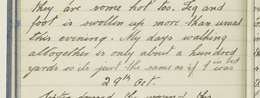 they are some hot too. Leg and
foot is swollen up more than usual
this evening. My days walking
altogether is only about a hundred
yards so its just the same as if I was in bed
29th Oct.